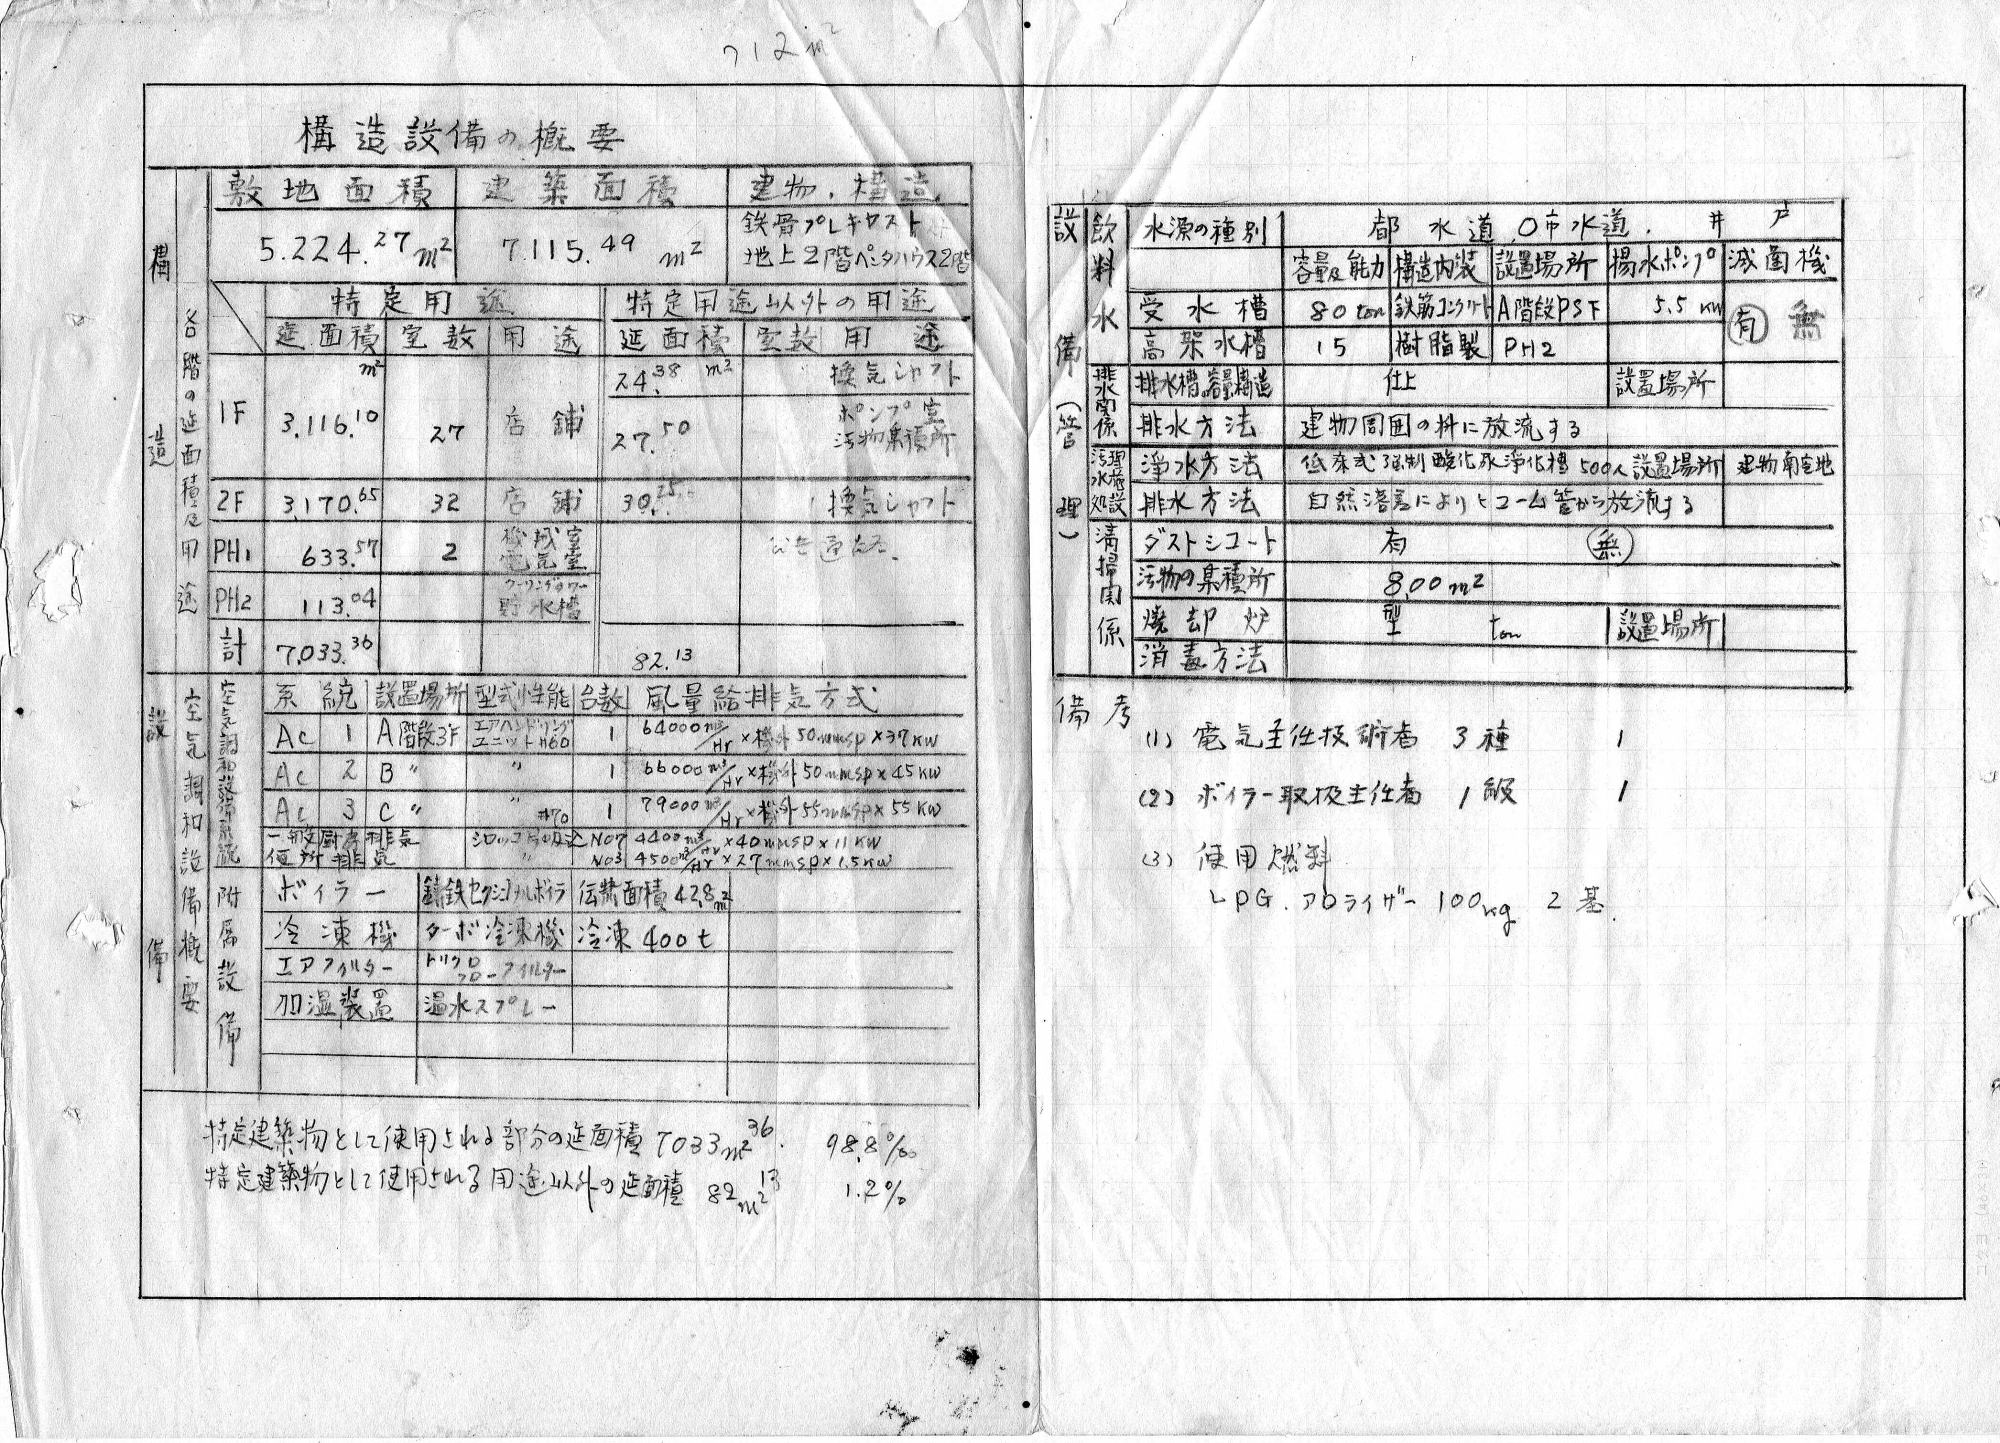 712m²
構造設備の概要
敷地面積 建築面積 建物.構造
5.224.27m² 7.115.49m² 鉄骨プレキャスト
地上2階ペンタハウス2階
構造
各階の延面積及用途
特定用途 特定用途以外の用途
延面積 室数 用途 延面積 室数 用途
1F 3.116.10 m² 27 店舗 24.38 m² 換気シャフト
27.50 ポンプ室
汚物集積所
2F 3.170.65 32 店舗 30.25 換気シャフト
PH1 633.57 2 機械室
電気室
PH2 113.04 クーリングタワー
貯水槽
計 7.033.36 82.13
設備
空気調和設備概要
空気調和設備系統
系統 設置場所 型式性能 台数 風量給排気方式
Ac 1 A階段3F エアハンドリングユニット#60 1 64000m³/Hr×機外50mmsp×37KW
Ac 2 B 〃 〃 1 66000m³/Hr×機外50mmsp×45KW
Ac 3 C 〃 〃 #70 1 79000m³/Hr×機外55mmsp×55KW
一般厨房排気 No7 4400m³/Hr×40mmsp×11KW
便所排気 〃 No3 4500m³/Hr×27mmsp×1.5KW
附属設備
ボイラー 鋳鉄セクショナルボイラ 伝熱面積42.8m²
冷凍機 ターボ冷凍機 冷凍400t
エアフィルター フローフィルター
加湿装置 温水スプレー
特定建築物として使用される部分の延面積 7033m²36. 98.8%
特定建築物として使用される用途以外の延面積 82m²13 1.2%
設備(管理)
飲料水
水源の種別 都水道.○市水道.井戸
容量及能力 構造内装 設置場所 揚水ポンプ 滅菌機
受水槽 80ton 鉄筋コンクリート A階段PSF 5.5KW 有 無
高架水槽 15 樹脂製 PH2
排水関係
排水槽の容量構造 仕上 設置場所
排水方法 建物周囲の桝に放流する
汚水処理施設
浄水方法 強制酸化 浄化槽500人 設置場所 建物南空地
排水方法 自然落差によりヒューム管から放流する
清掃関係
ダストシュート 有 無
汚物の集積所 8.00m²
焼却炉 型 ton 設置場所
消毒方法
備考
(1) 電気主任技術者 3種 1
(2) ボイラー取扱主任者 1級 1
(3) 使用燃料
LPG.アロライザー 100kg 2基.